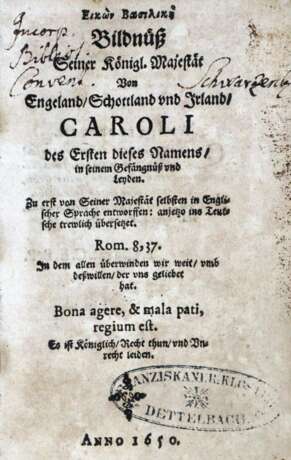 Εικὼν Βασιλικὴ
Incorp.
Biblioth.
Conven.
Bildnüß
Seiner Königl. Majestät
Von
Engeland/Schottland vnd Irland/
CAROLI
des Ersten dieses Namens/
in seinem Gefängnüß vnd
Leyden.
Zu erst von Seiner Majestät selbsten in Engli-
scher Sprache entworffen: anjetzo ins Teut-
sche trewlich übersetzet.
Rom. 8, 37.
In dem allen überwinden wir weit/ vmb
deßwillen/ der vns geliebet
hat.
Bona agere, & mala pati,
regium est.
Es ist Königlich/ Recht thun/ vnd Vn-
recht leiden.
FRANZISKANER KLOSTER
DETTELBACH
ANNO 1650.